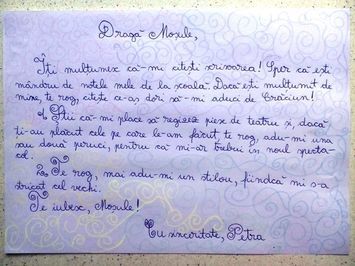 Dragă Moșule,
Îți mulțumesc că-mi citești scrisoarea! Sper că ești
mândru de notele mele de la școală. Dacă ești mulțumit de
mine, te rog, citește ce-aș dori să-mi aduci de Crăciun!
1. Știi că-mi place să regizez piese de teatru și, dacă
ți-au plăcut cele pe care le-am făcut, te rog, adu-mi una
sau două peruci, pentru că mi-ar trebui în noul specta-
col.
2. Te rog, mai adu-mi un stilou, fiindcă mi s-a
stricat cel vechi.
Te iubesc, Moșule!
Cu sinceritate, Petra